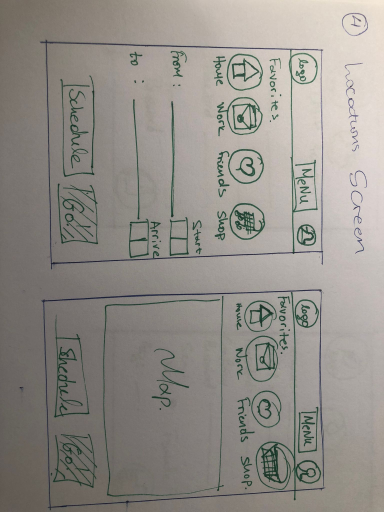 4 Locations Screen
logo MENU
Favorites.
Home Work Friends Shop
Start
From :
Arrive
to :
Schedule Go!
logo MENU
Favorites.
Home Work Friends Shop.
Map.
Schedule Go!